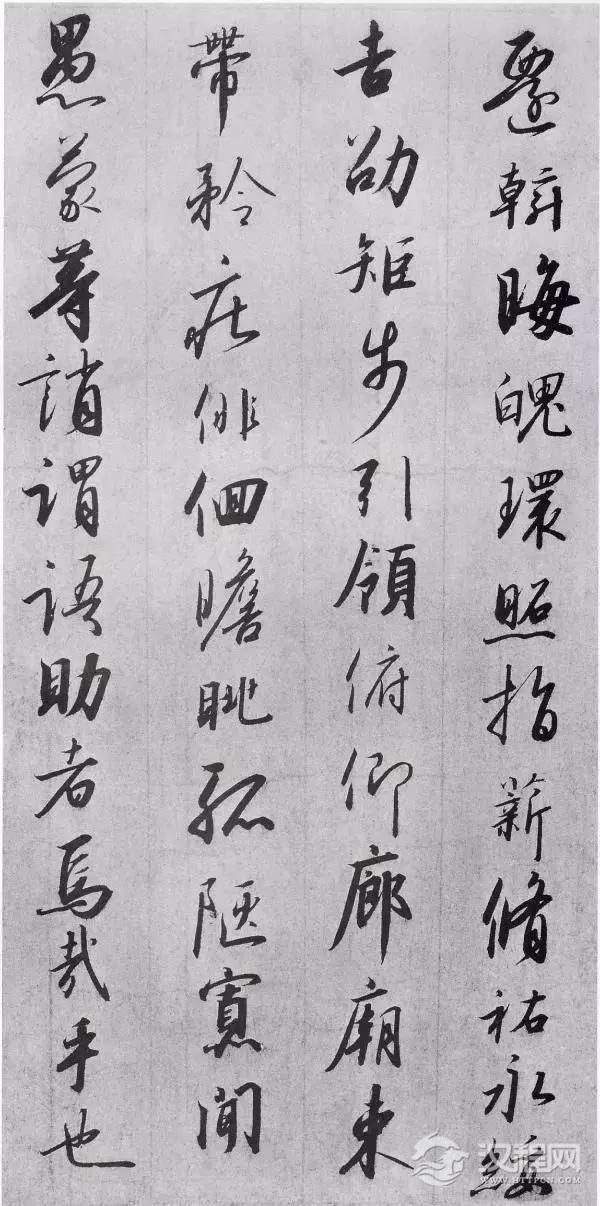 斡晦魄環照指薪脩祐永綏
吉劭矩步引領俯仰廊廟束
帶矜莊俳佪瞻眺孤陋寡聞
愚蒙等誚謂語助者焉哉乎也
汉程网
WWW.HTTPCN.COM